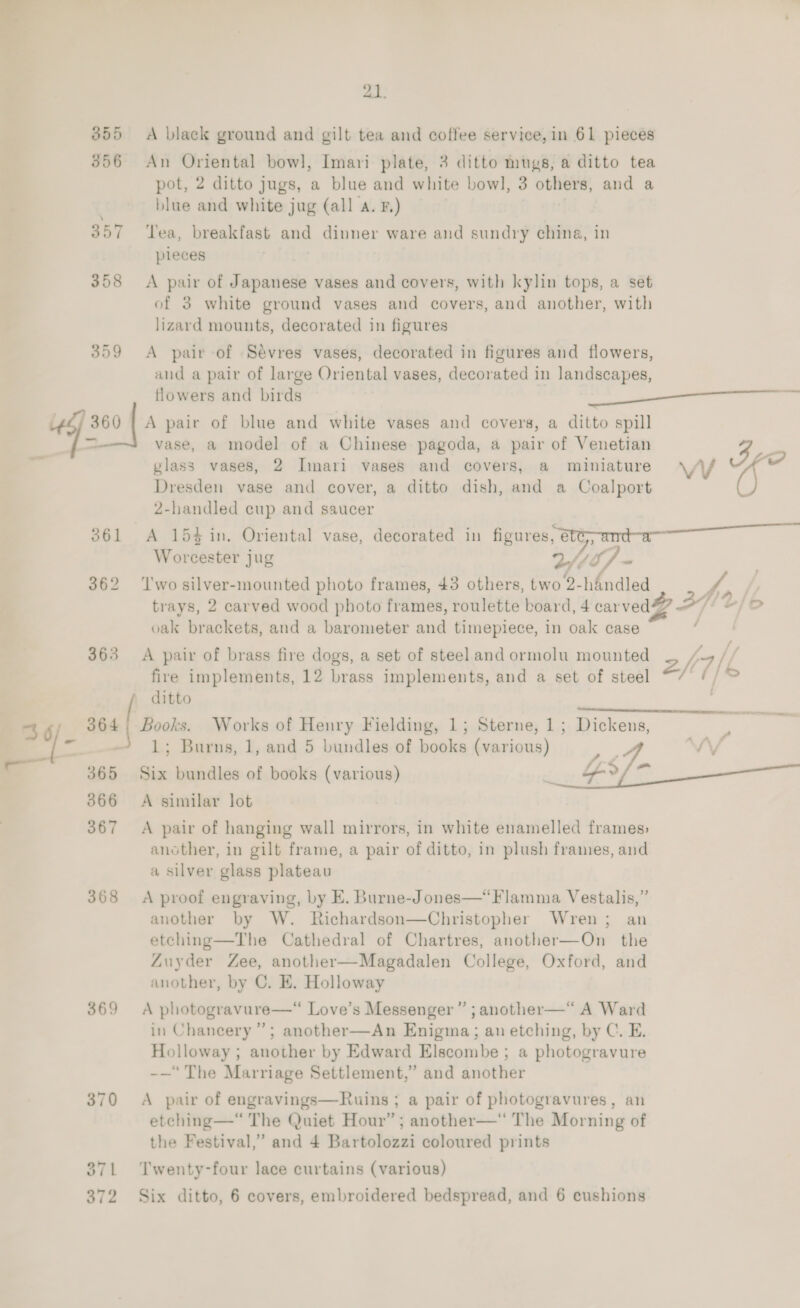 21.
355 A black ground and gilt tea and coffee service, in 61 pieces
356 An Oriental bowl, Imari plate, 3 ditto mugs, a ditto tea
pot, 2 ditto jugs, a blue and white bowl, 3 others, and a
blue and white jug (all A. F.)
357 Tea, breakfast and dinner ware and sundry china, in
pieces
358 A pair of Japanese vases and covers, with kylin tops, a set
of 3 white ground vases and covers, and another, with
lizard mounts, decorated in figures
359 A pair of Sèvres vases, decorated in figures and flowers,
and a pair of large Oriental vases, decorated in landscapes,
flowers and birds
45/- 360 A pair of blue and white vases and covers, a ditto spill
vase, a model of a Chinese pagoda, a pair of Venetian
glass vases, 2 Imari vases and covers, a miniature
Dresden vase and cover, a ditto dish, and a Coalport
2-handled cup and saucer
361 A 15½ in. Oriental vase, decorated in figures, etc., and a
Worcester jug
362 Two silver-mounted photo frames, 43 others, two 2-handled
trays, 2 carved wood photo frames, roulette board, 4 carved
oak brackets, and a barometer and timepiece, in oak case
363 A pair of brass fire dogs, a set of steel and ormolu mounted
fire implements, 12 brass implements, and a set of steel
ditto
36/- 364 Books. Works of Henry Fielding, 1; Sterne, 1; Dickens,
1; Burns, 1, and 5 bundles of books (various)
365 Six bundles of books (various) 45/-
366 A similar lot
367 A pair of hanging wall mirrors, in white enamelled frames,
another, in gilt frame, a pair of ditto, in plush frames, and
a silver glass plateau
368 A proof engraving, by E. Burne-Jones—“Flamma Vestalis,”
another by W. Richardson—Christopher Wren; an
etching—The Cathedral of Chartres, another—On the
Zuyder Zee, another—Magadalen College, Oxford, and
another, by C. E. Holloway
369 A photogravure—“Love’s Messenger”; another—“A Ward
in Chancery”; another—An Enigma; an etching, by C. E.
Holloway; another by Edward Elscombe; a photogravure
—“The Marriage Settlement,” and another
370 A pair of engravings—Ruins; a pair of photogravures, an
etching—“The Quiet Hour”; another—“The Morning of
the Festival,” and 4 Bartolozzi coloured prints
371 Twenty-four lace curtains (various)
372 Six ditto, 6 covers, embroidered bedspread, and 6 cushions